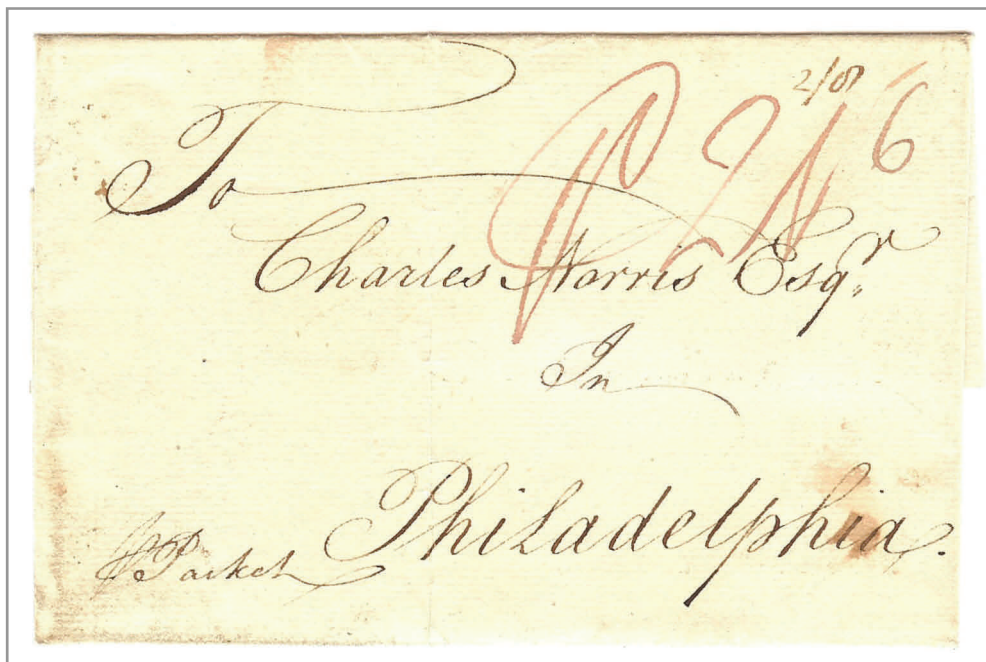 2/8
6
To
Charles Norris Esqr.
In
Philadelphia.
Packet